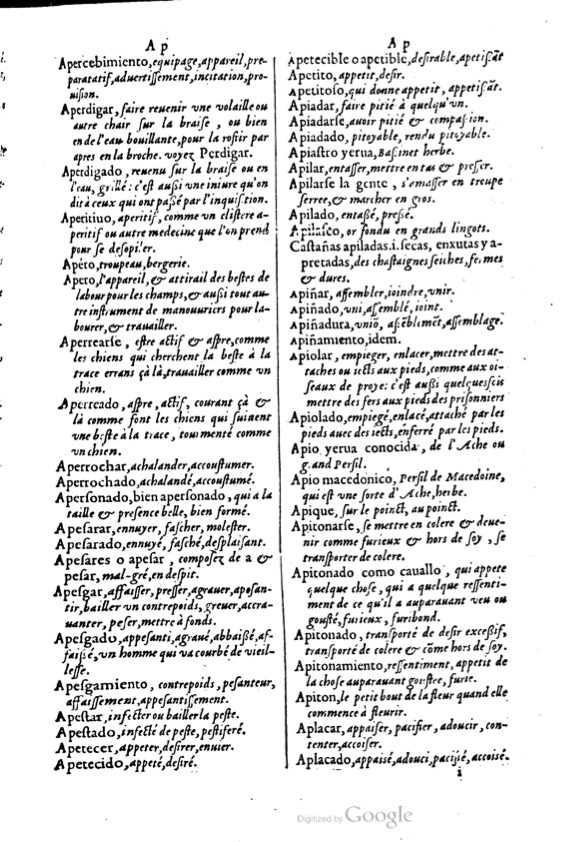 A p
Apercebimiento, equipage, appareil, pre-
paratatif, aduertissement, incitation, pro-
uision.
Aperdigar, faire reuenir vne volaille ou
autre chair sur la braise, ou bien
en de l'eau bouillante, pour la rostir par
apres en la broche. voyez Perdigar.
Aperdigado, reuenu sur la braise ou en
l'eau, grillé: c'est aussi vne iniure qu'on
dit à ceux qui ont passé par l'inquisition.
Aperitiuo, aperitif, comme vn clistere a-
peritif ou autre medecine que l'on prend
pour se desopiler.
Apéro, troupeau, bergerie.
Apero, l'appareil, & attirail des bestes de
labour pour les champs, & aussi tout au-
tre instrument de manouuriers pour la-
bourer, & trauailler.
Aperrearse, estre actif & aspre, comme
les chiens qui cherchent la beste à la
trace errans çà là, trauailler comme vn
chien.
Aperreado, aspre, actif, courant çà &
là comme font les chiens qui suiuent
vne beste à la trace, tourmenté comme
vn chien.
Aperrochar, achalander, accoustumer.
Aperrochado, achalandé, accoustumé.
Apersonado, bien apersonado, qui a la
taille & presence belle, bien formé.
Apesarar, ennuyer, fascher, molester.
Apesarado, ennuyé, fasché, desplaisant.
Apesares o apesar, composez de a &
pesar, mal-gré, en despit.
Apesgar, affaisser, presser, agrauer, apesan-
tir, bailler vn contrepoids, greuer, accra-
uanter, peser, mettre à fonds.
Apesgado, appesanti, agraué, abbaissé, af-
faissé, vn homme qui va courbé de vieil-
lesse.
Apesgamiento, contrepoids, pesanteur,
affaissement, appesantissement.
Apestar, infecter ou bailler la peste.
Apestado, infecté de peste, pestiferé.
Apetecer, appeter, desirer, enuier.
Apetecido, appeté, desiré.
A p
Apetecible o apetible, desirable, apetissãt
Apetito, appetit, desir.
Apetitoso, qui donne appetit, appetissãt.
Apiadar, faire pitié à quelqu'vn.
Apiadarse, auoir pitié & compassion.
Apiadado, pitoyable, rendu pitoyable.
Apiastro yerua, Bassinet herbe.
Apilar, entasser, mettre en tas & presser.
Apilarse la gente, s'emasser en troupe
serree, & marcher en gros.
Apilado, entassé, pressé.
Apilasco, or fondu en grands lingots.
Castañas apiladas.i. secas, enxutas y a-
pretadas, des chastaignes seiches, fermes
& dures.
Apiñar, assembler, ioindre, vnir.
Apiñado, vni, assemblé, ioint.
Apiñadura, vniõ, assẽblemẽt, assemblage.
Apiñamiento, idem.
Apiolar, empieger, enlacer, mettre des at-
taches ou iects aux pieds, comme aux oi-
seaux de proye: c'est aussi quelquesfois
mettre des fers aux pieds des prisonniers
Apiolado, empiegé, enlacé, attaché par les
pieds auec des iects, enferré par les pieds.
Apio, yerua conocida, de l'Ache ou
grand Persil.
Apio macedonico, Persil de Macedoine,
qui est vne sorte d'Ache, herbe.
Apique, sur le poinct, au poinct.
Apitonarse, se mettre en colere & deue-
nir comme furieux & hors de soy, se
transporter de colere.
Apitonado como cauallo, qui appete
quelque chose, qui a quelque ressenti-
ment de ce qu'il a auparauant veu ou
gousté, furieux, furibond.
Apitonado, transporté de desir excessif,
transporté de colere & cõme hors de soy.
Apitonamiento, ressentiment, appetit de
la chose auparauant goustee, furie.
Apiton, le petit bout de la fleur quand elle
commence à fleurir.
Aplacar, appaiser, pacifier, adoucir, con-
tenter, accoiser.
Aplacado, appaisé, adouci, pacifié, accoisé.
i
Digitized by Google